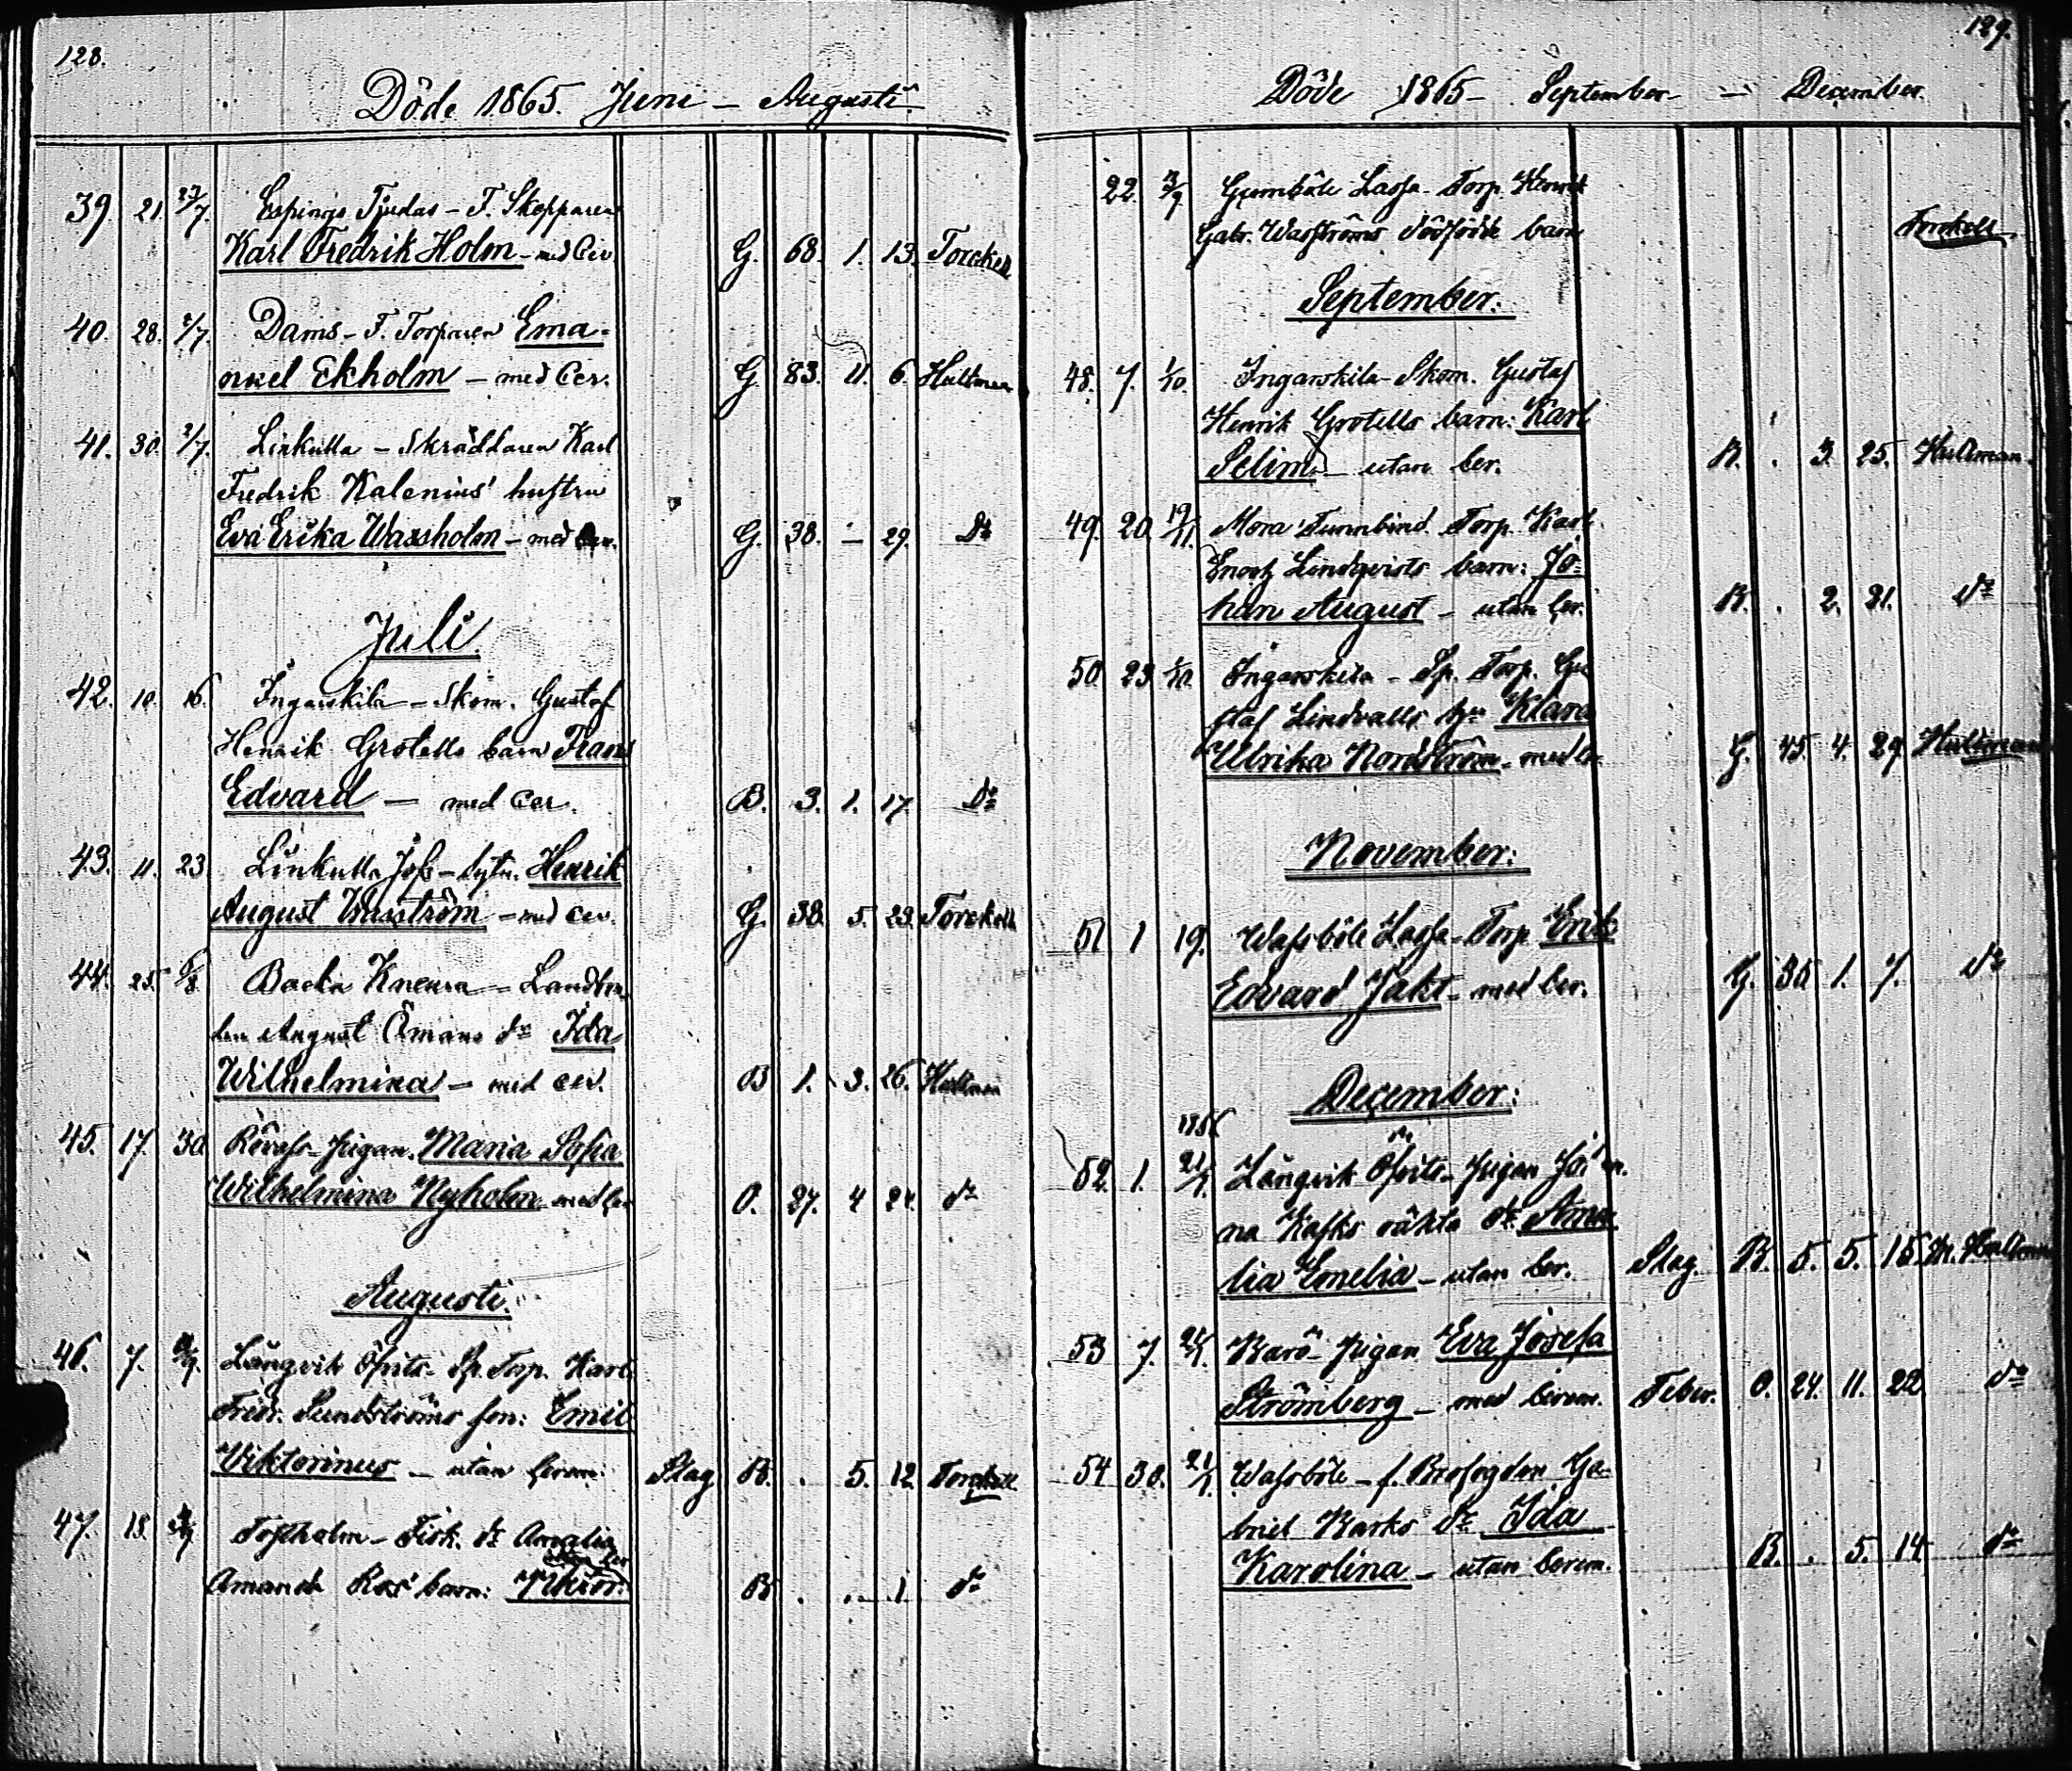 128.
Döde 1865. Juni — Augusti
39. 21. 27/7. Espings Tjudas - F. Skepparen
Karl Fredrik Holm - med Cer. G. 68. 1. 13. Torckell
40. 28. /7. Dams - F. Torparen Ema-
nuel Ekholm - med Cer. G. 83. 11. 6. Hultman
41. 30. /7. Linkulla - Skräddaren Karl
Fredrik Kalenius' hustru
Eva Erika Waxholm - med Cer. G. 38. — 29. Do
Juli.
42. 10. 16. Ingarskila - Skom. Gustaf
Henrik Grotells barn Frans
Edvard — med cer. B. 3. 1. 17. Do
43. 11. 23 Linkulla Jofs - Sytn. Henrik
August Wasström - med cer. G. 38. 5. 23. Torckell
44. 25. /8. Backa Kneura - Landbon-
den August Ömans dr Ida
Wilhelmina - med cer. B 1. 3. 26. Hultman
45. 17. 30 Pigan Maria Sofia
Wilhelmina Nyholm med cer O. 27. 4 24. do
Augusti.
46. 7. /9. Långvik Öfrits - Sp. Torp. Karl
Fredr. Sundströms son: Emil
Viktorinus - utan cerem. Slag B. . 5. 12. Torckell
47. 18. /9 Tostholm - Fisk. dr Amalia
utan cer
Amanda Ros' barn: Viktor. B . . 1. do
129.
Döde 1865 - September — December.
22. 3/9 Gumböle Lassa - Torp. Henrik
Gabr. Wasströms dödfödde barn Torckell
September.
48. 7. 1/10. Ingarskila - Skom. Gustaf
Henrik Grotells barn: Karl
Selim - utan cer. B. . 3. 25. Hultman.
49. 20. 19/11. Mora Tunnbind. Torp. Karl
Enoch Lindqvists barn: Jo-
han August - utan cer. B. . 2. 21. do
50 23 /10. Ingarskila - Sp. Torp. Gu
staf Lindvalls hu Klara
Ulrika Nordström - med cer. G. 45. 4. 29. Hultman
November:
51 1 19. Wassböle Lassa - Torp Erik
Edvard Jakt - med cer. G. 35 1. 7. do
December:
1866
52. 1. 21/1. Långvik Öfrits - Pigan Jo
na Kasks oäkta dr Ama
lia Emelia - utan cer. Slag. B. 5. 5. 15. Hultman
53 7. 21/1. Barö - Pigan Eva Josefa
Strömberg - med cerem. Feber. O. 24. 11. 22 do
54 30. 21/1. Wassböle - f. Brofogden Ga-
briel Karks dr Ida
Karolina - utan cerem. B. . 5. 14 do